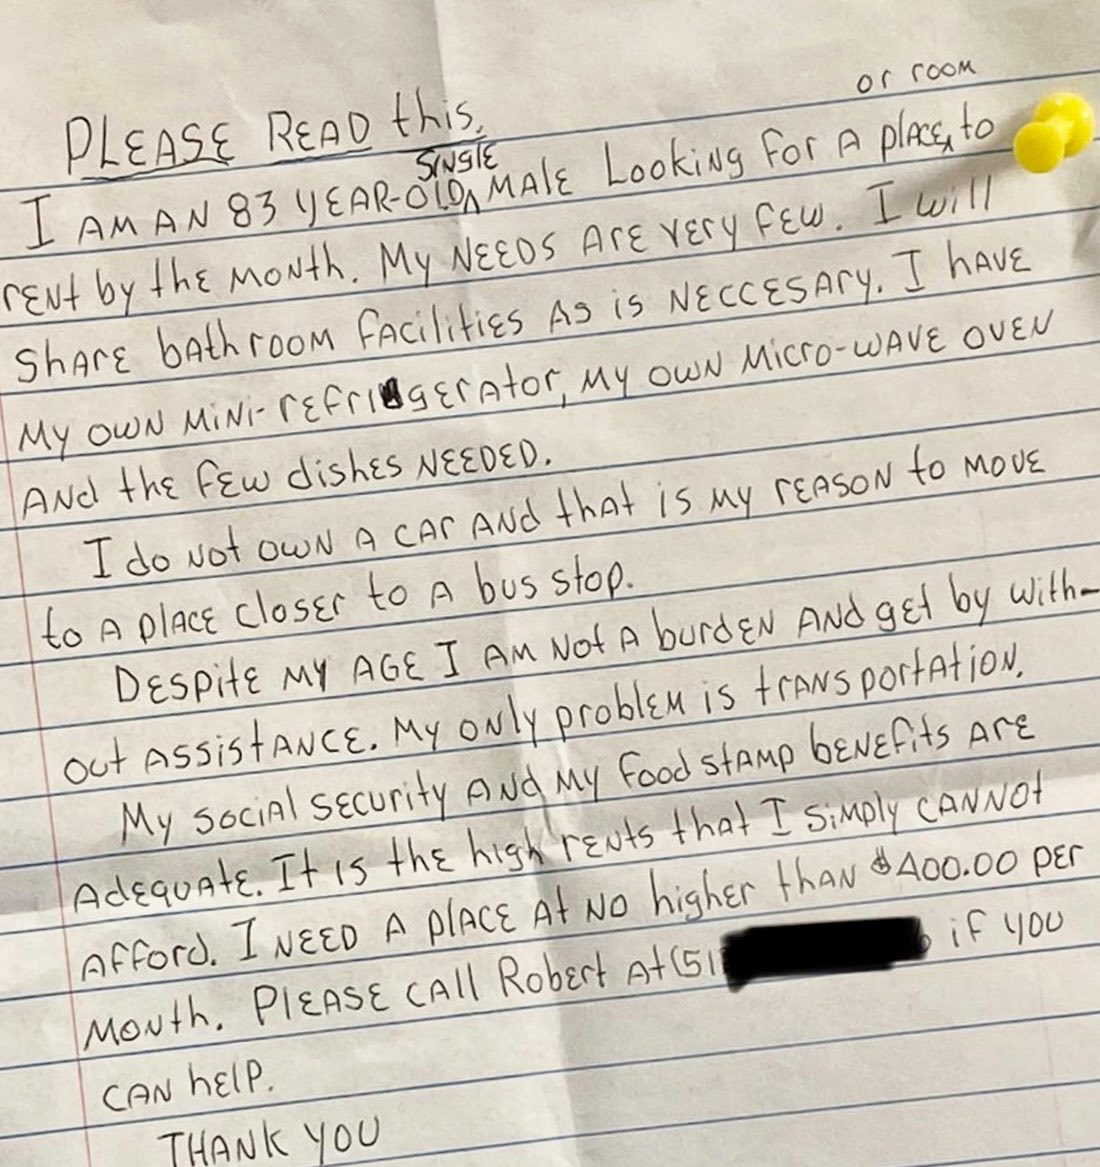 PLEASE READ this.
or room
SINGLE
I AM AN 83 YEAR-OLD MALE Looking For A place to
rent by the MONTH. My NEEDS ARE very few. I will
SHARE bathroom facilities As is NECCESARY. I HAVE
My OWN MINI-refrigerator, My OWN Micro-wave OVEN
And the few dishes NEEDED.
I do Not OWN A CAR AND that is My REASON to MOVE
to A place closer to A bus stop.
DESPITE My AGE I AM Not A burden And get by with-
out Assistance. My only problem is transportation.
My social security And My food stamp benefits ARE
Adequate. It is the high rents that I simply CANNOT
Afford. I NEED A place At NO higher than $400.00 per
MONTH. PLEASE call Robert At (51 if you
CAN help.
THANK YOU